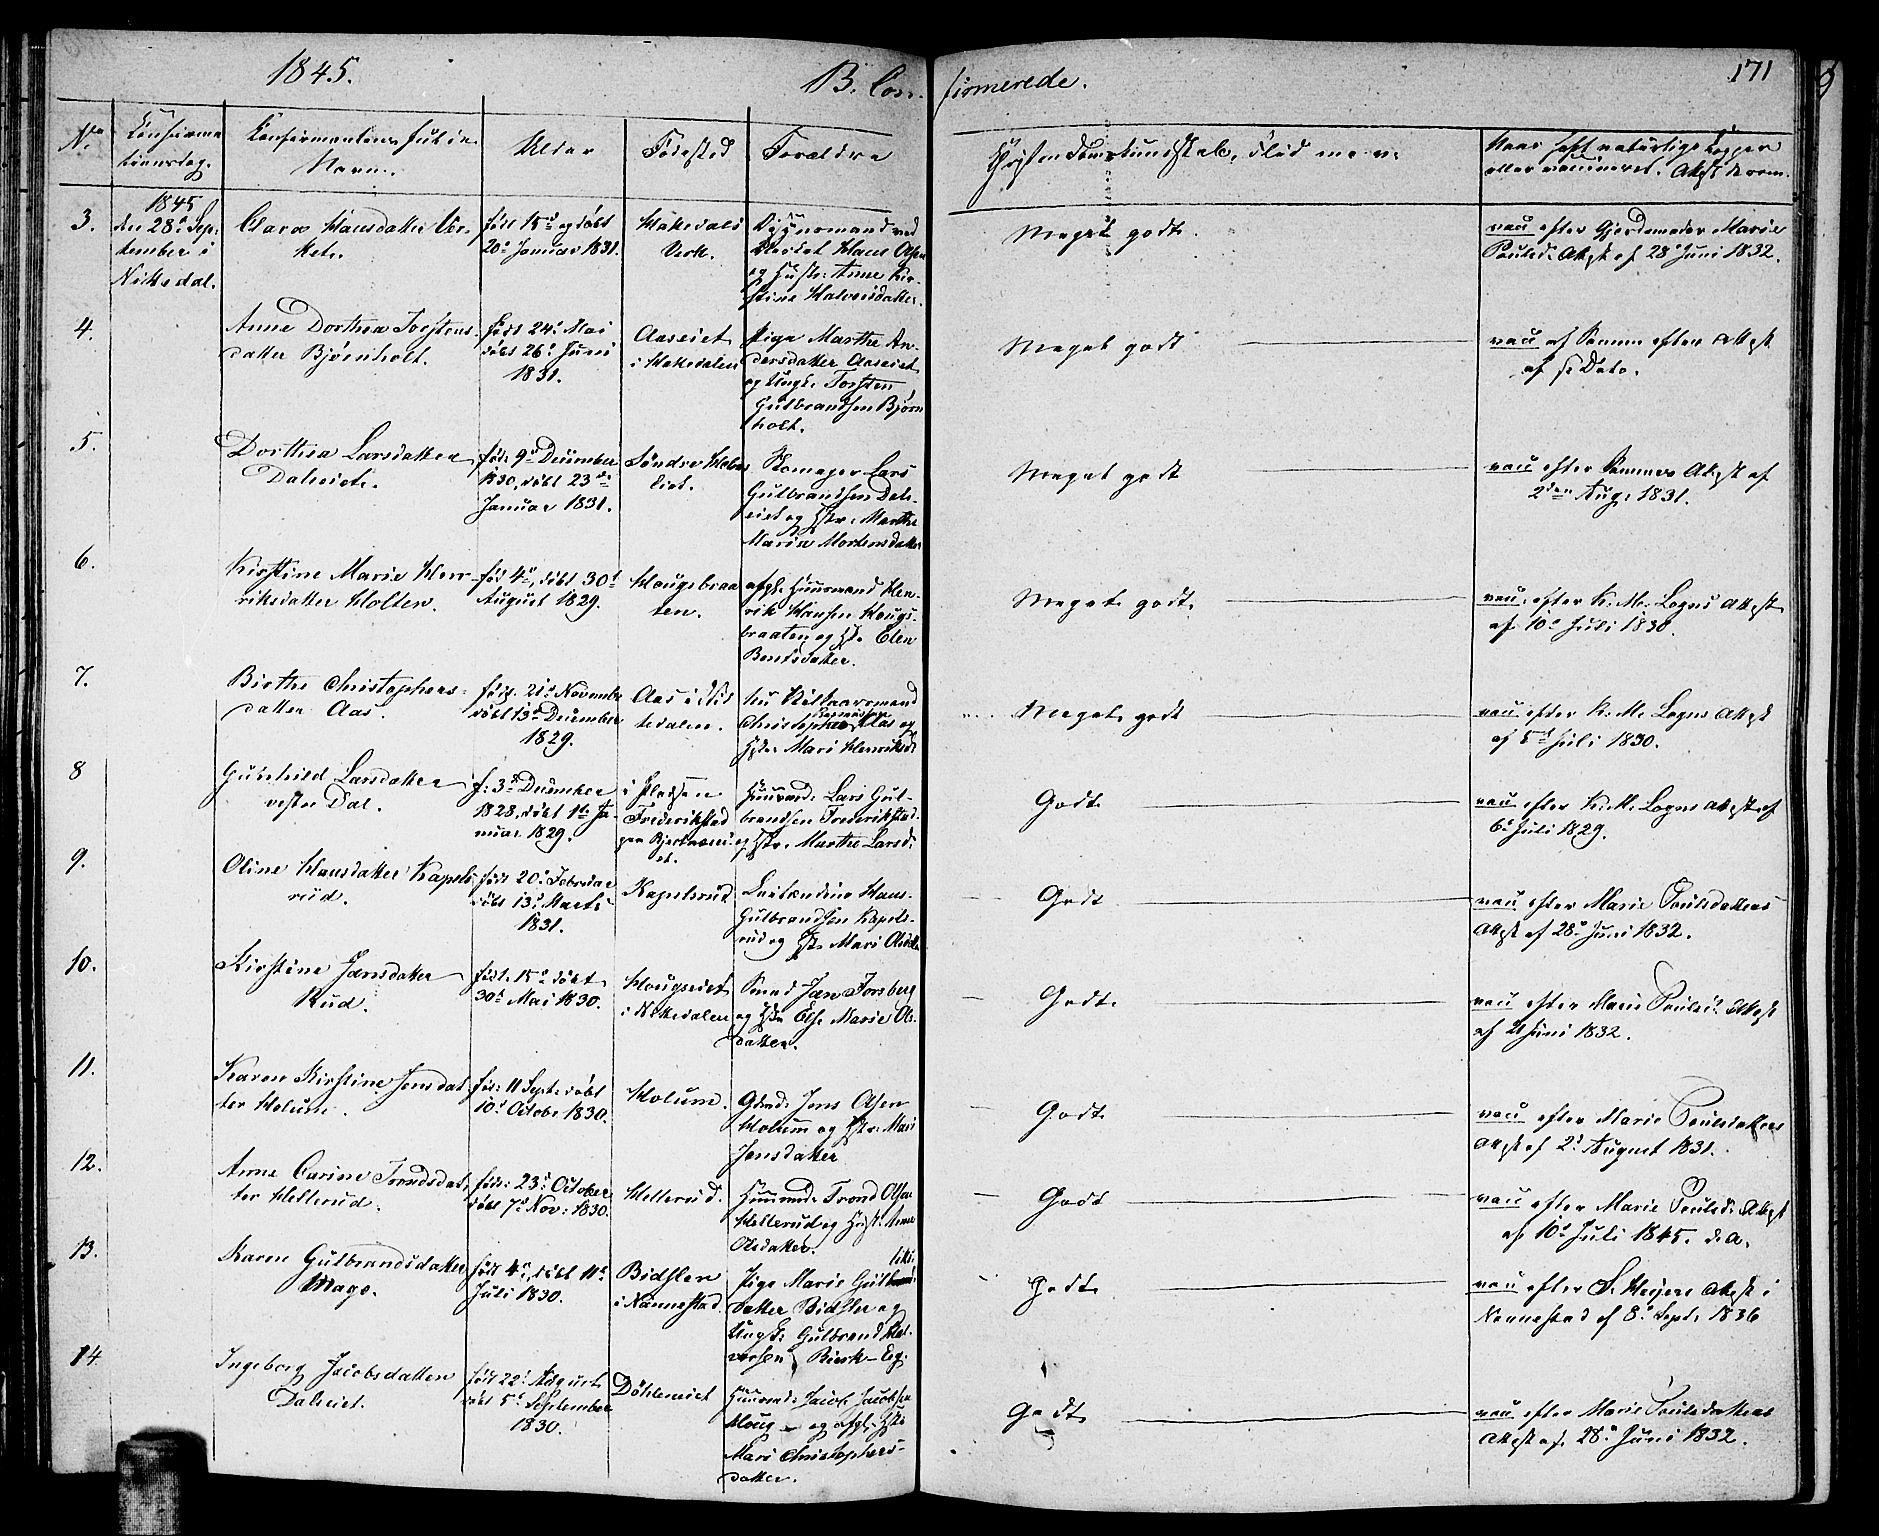 1845.
B. Con-
firmerede.
171
No.
Confirma
tionsdag.
Confirmantens fulde
Navn.
Alder
Fødested
Forældre
Christendomskundskab, Flid m. v.
Naar havt naturlige Kopper
eller vaccineret. Attest derom.
3.
1845
den 28de Sep-
tember i
Nittedal.
Clara Hansdatter Vær-
ket.
født 15de og døbt
20de Januar 1831.
Hakedals
Værk.
Huusmand ved
Værket Hans Olsen
og Hustr. Anne Kir-
stine Halvorsdatter.
Meget godt.
vac efter Gjordemoder Marie
Poulsd. Attest af 28de Juni 1832.
4.
Anne Dorthea Torstens-
datter Bjørnholt.
født 24de Mai
døbt 26de Juni
1831.
Aaseiet
i Hakedalen
Pige Marthe An-
dersdatter Aaseiet
og Ungk. Torsten
Gulbrandsen Bjørn
holt.
Meget godt
vac af Samme efter Attest
af s. Dato.
5.
Dorthea Larsdatter
Daleiet.
født 9de December
1830, døbt 23de
Januar 1831.
Søndre
Lars
Gulbrandsen Dals-
eiet og Hstr. Marthe
Maria Mortensdatter
Meget godt
vac efter Sammes Attest af
2den Aug. 1831.
6.
Kirstine Marie Hen-
riksdatter Holten.
født 4de, døbt 30te
August 1829.
Hougsbraa
ten.
afgl. Huusmand Hen-
rik Hansen Hougs-
braaten og Hst. Elen
Berntsdatter.
Meget godt.
vac. efter K. M. Logns Attest
af 10de Juli 1830.
7.
Birthe Christophers-
datter Aas.
født 21de November
døbt 13de December
1829.
Aas i Nit
tedalen.
nu
Christopher Aas og
Hstr. Mari Henriksd.
Meget godt
vac efter K. M. Logns Attest
af 5te Juli 1830.
8
Gunhild Larsdatter
vestre Dal.
f. 3de December
1828, døbt 1te Ja-
nuar 1829.
i Pladsen
Frederikstad
Huusmd. Lars Gul-
brandsen Frederikstad
og Hstr. Marthe Larsd.
Godt
vac efter K. M. Logns Attest af
6te Juli 1829.
9.
Oline Hansdatter Kapels
rud.
født 20de Februar
døbt 13de Marts
1831.
Kapelsrud
Leilænding Hans
Gulbrandsen Kapels-
rud og Hstr. Mari Olsdtr.
Godt
vac efter Marie Poulsdatters
Attest af 28de Juni 1832.
10.
Kirstine Jansdatter
Rud.
født 15de døbt
30te Mai 1830.
Hougseiet
i Nittedalen
Smed Jan Forsberg
og Hstr. Else Marie Ols-
datter.
Godt.
vac efter Marie Poulsd. Attest
af 21 Juni 1832.
11.
Karen Kirstine Jensdat-
ter Holum.
født 11 Sept. døbt
10de Octobr 1830.
Holum.
Gdmd. Jens Olsen
Holum og Hstr. Mari
Jensdatter
Godt
vac efter Marie Poulsdatters
Attest af 2de August 1831.
12.
Anne Carine Trondsdat-
ter Hellerud.
født 23de October
døbt 7de Nov: 1830.
Hellerud.
Huusmd. Trond Olsen
Hellerud og Hust. Anne
Olsdatter.
Godt
vac efter Marie Poulsd. Attest
af 10de Juli 1845. d. A.
13.
Karen Gulbrandsdatter
Mago.
født 4de, døbt 11te
Juli 1830.
Bidsler
i Nannestad.
Pige Marie
datter Bidsler og
Ungk. Gulbrand Hal-
vorsen Bjerk-Eig.
Godt.
vac efter S. Heijers Attest i
Nannestad af 8de Septr. 1836
14.
Ingeborg Jacobsdatter
Daleiet.
født 22de August
døbt 5te September
1830.
Døhleneiet
Huusmd. Jacob Jacobsen
Houg og afgl. Hstr.
Mari Christophers-
datter.
Godt.
vac efter Marie Poulsdatters
Attest af 28de Juni 1832.